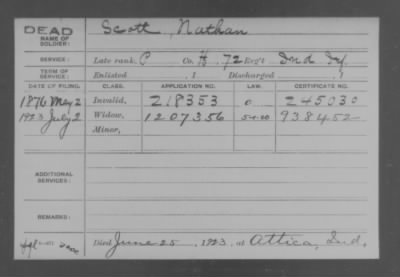 DEAD
NAME OF SOLDIER:
Scott, Nathan
SERVICE:
Late rank, P Co. H. 72 Reg't Ind Inf.
TERM OF SERVICE:
Enlisted , 1 Discharged , 1
DATE OF FILING. CLASS. APPLICATION NO. LAW. CERTIFICATE NO.
1876 May 2 Invalid, 218353 0 245030
1923 July 2 Widow, 1207356 938452
Minor,
ADDITIONAL SERVICES:
REMARKS:
Died June 25, 1923, at Attica, Ind.